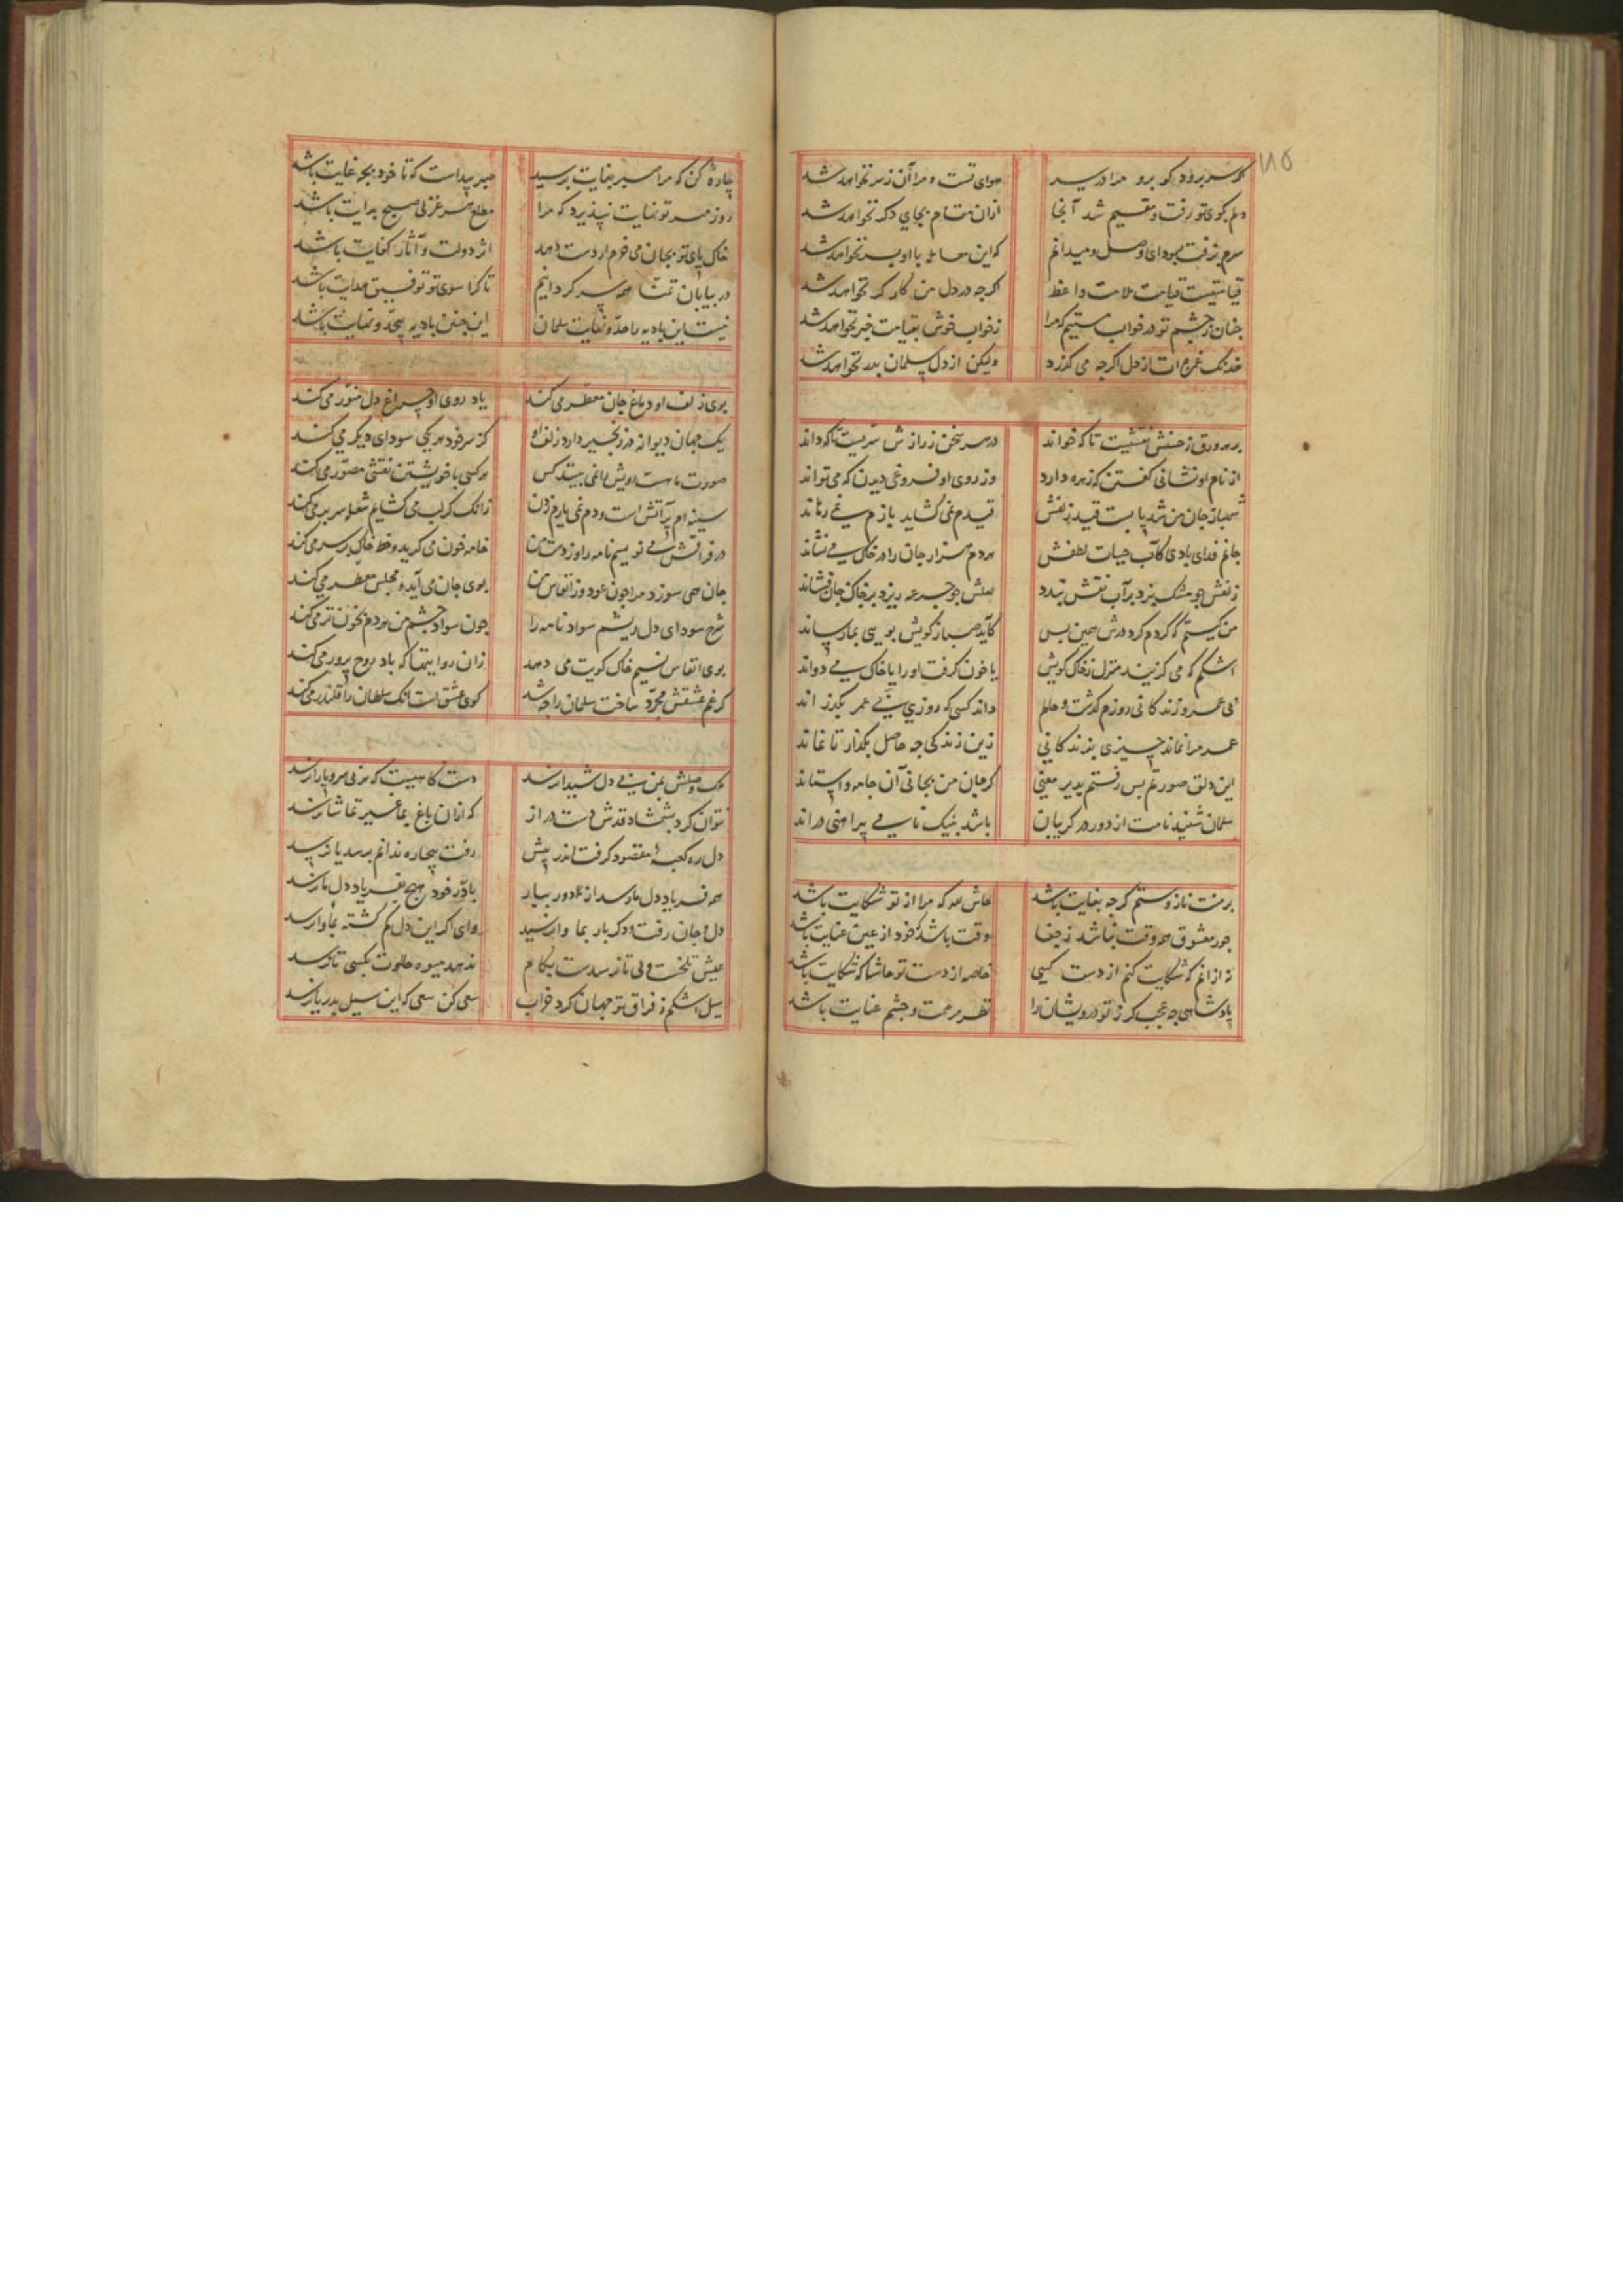 ۱۱۵
اگر سر برود گو برو مرا در سر هوای تست و مرا آن ز سر نخواهد شد
دلم بکوی تو رفت و مقیم شد آنجا ازان مقام بجای دگر نخواهد شد
سرم برفت بسودای وصل و میدانم که این معامله با او بسر نخواهد شد
قیامتیست قیامت ملامت واعظ اگرچه در دل من کارگر نخواهد شد
چنان ز چشم تو در خواب مستیم که مرا ز خواب خوش بقیامت خبر نخواهد شد
خدنک غمزه‌ات از دل اگرچه می گذرد ولیکن از دل سلمان بدر نخواهد شد
بر هر ورق ز حسنش نقشیست تا که خواند در هر سخن ز رازش سریست تا که داند
از نام او نشانی گفتن که زهره دارد وز روی او فروغی دیدن که می تواند
شهباز جان من شد پا بست قید زلفش قیدم نمی گشاید بازم نمی رهاند
جانم فدای بادی کآب حیات لطفش هردم هزار جان را در خاک می نشاند
زلفش چو مشک بیزد بر آب نقش بندد لعلش چو جرعه ریزد بر خاک جان فشاند
من کیستم که گردم گرد درش همین بس کآید صبا ز کویش بویی بما رساند
اشکم که می گزیند منزل ز خاک کویش یا خون گرفت او را یا خاک می دواند
بی عمر و زندگانی روزم گذشت و حالم داند کسی که روزی بی عمر بگذراند
عمر مرا نماند چیزی بزندگانی زین زندگی چه حاصل بگذار تا نماند
این دلق صورتم بس رفتم بدیر معنی گر جان من بجانی آن جامه واستاند
سلمان شنید نامت از دور در گریبان باشد به نیک نامی پیراهنی دراند
بر منت ناز و ستم گرچه بغایت باشد حاش لله که مرا از تو شکایت باشد
جور معشوق همه وقت نباشد ز جفا وقت باشد که خود از عین عنایت باشد
نه ازانم که شکایت کنم از دست کسی خاصه از دست تو حاشا که شکایت باشد
پادشاهی چه عجب گر ز تو درویشان را نظر مرحمت و چشم عنایت باشد
چاره کن که مرا صبر بغایت برسید صبر پیداست که تا خود بچه غایت باشد
روز مهر تو نهایت نپذیرد که مرا مطلع هر غزلی صبح بدایت باشد
خاک پای تو بجان می خرم ار دست دهد اثر دولت و آثار کفایت باشد
در بیابان تمنا همه سر گردانیم تا کرا سوی تو توفیق هدایت باشد
نیست این بادیه را حد و نهایت سلمان این چنین بادیه بیحد و نهایت باشد
بوی زلف او دماغ جان معطر می کند یاد روی او چراغ دل منور می کند
یک جهان دیوانه در زنجیر دارد زلف او کز سر خود هر یکی سودای دیگر می کند
صورت ماهیت رویش را نمی بیند کس هر کسی با خویشتن نقشی مصور می کند
سینه ام پر آتش است و دم نمی یارم زدن زانک گر لب می گشایم شعله سر بر می کند
در فراقش می نویسم نامه را وز دست من خامه خون می گرید و خط خاک بر سر می کند
جان همی سوزد مرا چون عود وز انفاس من بوی جان می آید و مجلس معطر می کند
شرح سودای دل ریشم سواد نامه را چون سواد چشم من هردم بخون تر می کند
بوی انفاس نسیم خاک کویت می دهد زان روایتها که باد روح پرور می کند
گر غم عشقش مجرد ساخت سلمان را چه شد کوی عشق است آنک سلطان را قلندر می کند
وصلش بمن بی دل شیدا نرسد دست کاهیست که هر بی سر و پا را رسد
نتوان کرد بشمشاد قدش دست دراز که ازان باغ بما غیر تماشا نرسد
دل ره کعبه مقصود گرفت اندر پیش رفت بیچاره ندانم برسد یا نرسد
همه فریاد دل ما رسد از ما دور بیار یارب خود هیچ بفریاد دل ما نرسد
دل و جان رفت و دگربار بما وا نرسید وای اگر این دل گم گشته بما وا نرسد
عیش تلخست ولی تا نرسد دست بکام ندهد میوه حلاوت بکسی تا نرسد
سیل اشکم ز فراق تو جهان کرد خراب سعی کن سعی که این سیل بدریا نرسد